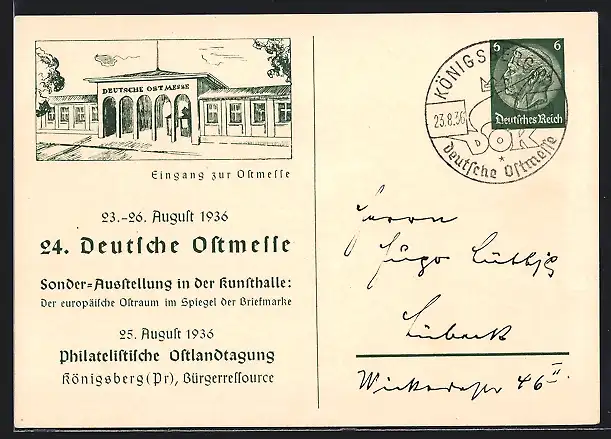 DEUTSCHE OSTMESSE
Eingang zur Oſtmeſſe
23.-26. Auguſt 1936
24. Deutſche Oſtmeſſe
Sonder=Ausſtellung in der Kunſthalle:
Der europäiſche Oſtraum im Spiegel der Briefmarke
25. Auguſt 1936
Philateliſtiſche Oſtlandtagung
Königsberg (Pr), Bürgerreſſource
KÖNIGSBERG
23.8.36
DOK
Deutſche Oſtmeſſe
6 6
Deutſches Reich
Herrn
Hugo
Lübeck
46 II